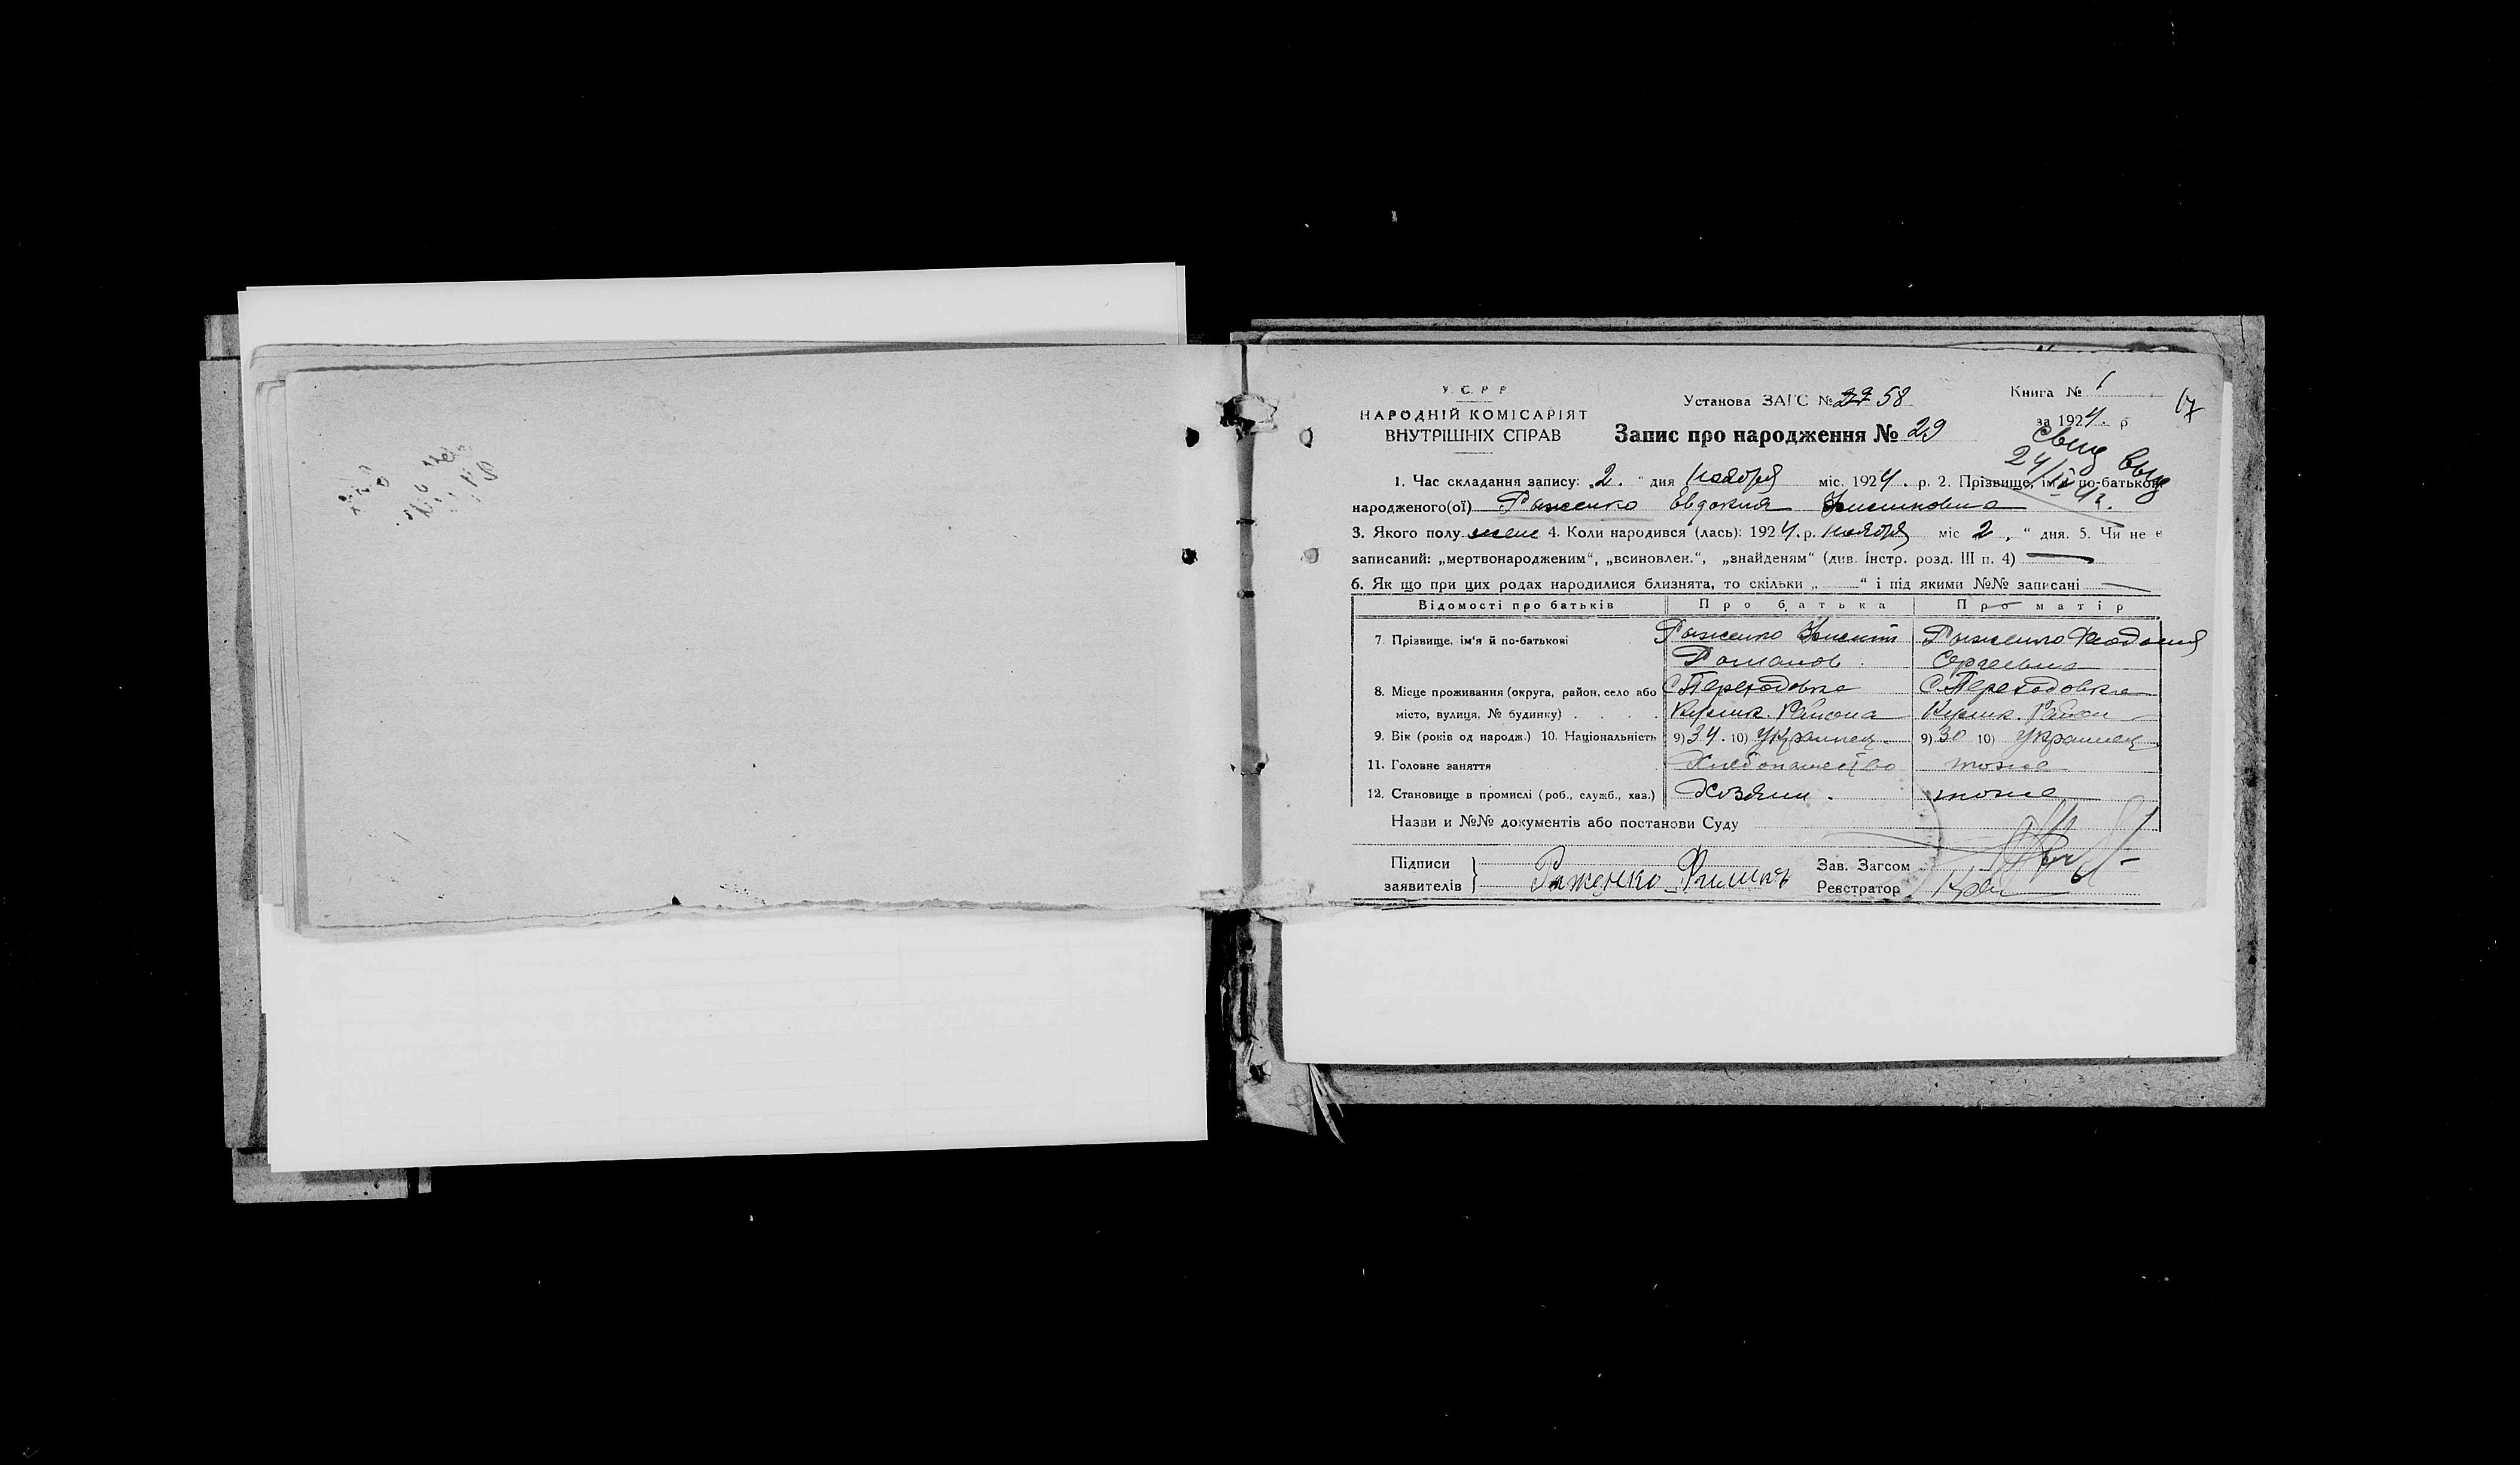 У.С.Р.Р.
НАРОДНІЙ КОМІСАРІЯТ
ВНУТРІШНІХ СПРАВ
Установа ЗАГС № 58
Книга № 1
за 1924. р
17
Запис про народження № 29
Свид выд
24/
1. Час складання запису: „2.“ дня ноября міс. 1924. р. 2. Прізвище, ім'я по-батькові
народженого(ої) Рыженко Евдокия
3. Якого полу женс 4. Коли народився (лась): 1924. р. ноября міс 2, “ дня. 5. Чи не є
записаний: „мертвонародженим“, „всиновлен.“, „знайденям“ (див. Інстр. розд. III п. 4) —
6. Як що при цих родах народилися близнята, то скільки „ “ і під якими №№ записані —
Відомості про батьків Про батька Про матір
7. Прізвище, ім'я й по-батькові Рыженко Рыженко Феодосия
Романов. Сергеевна
8. Місце проживання (округа, район, село або С. Переходовка С. Переходовка
місто, вулиця, № будинку) . . . . Района Район
9. Вік (років од народж.) 10. Національність 9) 34. 10) Украинец. 9) 30 10) Украинец
11. Головне заняття Хлебопашество тоже
12. Становище в промислі (роб., служб., хаз.) Хозяин. тоже
Назви и №№ документів або постанови Суду
Підписи
заявителів } Риженко
Зав. Загсом
Реєстратор